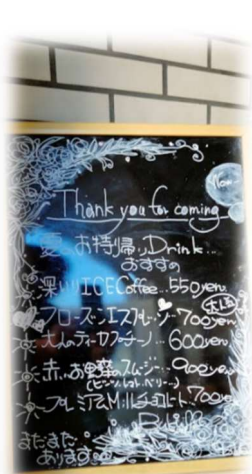 Thank you for coming
夏のお持帰りDrink...
おすすめ
深いりICE Coffee...550yen
フローズンエスプレッソ...700yen
大人のティーカプチーノ...600yen
赤いお野菜のスムージー...900yen
(ビーツ、トマト、ベリー...)
プレミアムMilkチョコレート...700yen
まだまだ
あります